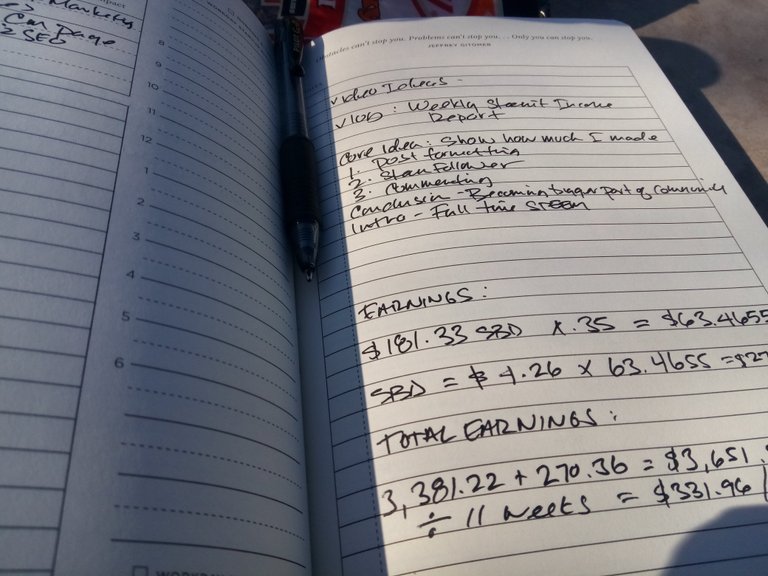 Marketing
Page
2 SEO
8
9
10
11
12
1
2
3
4
5
6
Obstacles can't stop you. Problems can't stop you. . . Only you can stop you.
JEFFREY GITOMER
Video Ideas -
Vlog: Weekly Steemit Income
Report
Core Idea: Show how much I made
1. Post formatting
2. Steem Follower
3. Commenting
Conclusion - Becoming bigger part of community
Intro - Full time STEEM
EARNINGS:
$181.33 SBD x .35 = $63.4655
SBD = $ 4.26 x 63.4655 = $27
TOTAL EARNINGS:
3,381.22 + 270.36 = $3,651.
÷ 11 weeks = $331.96